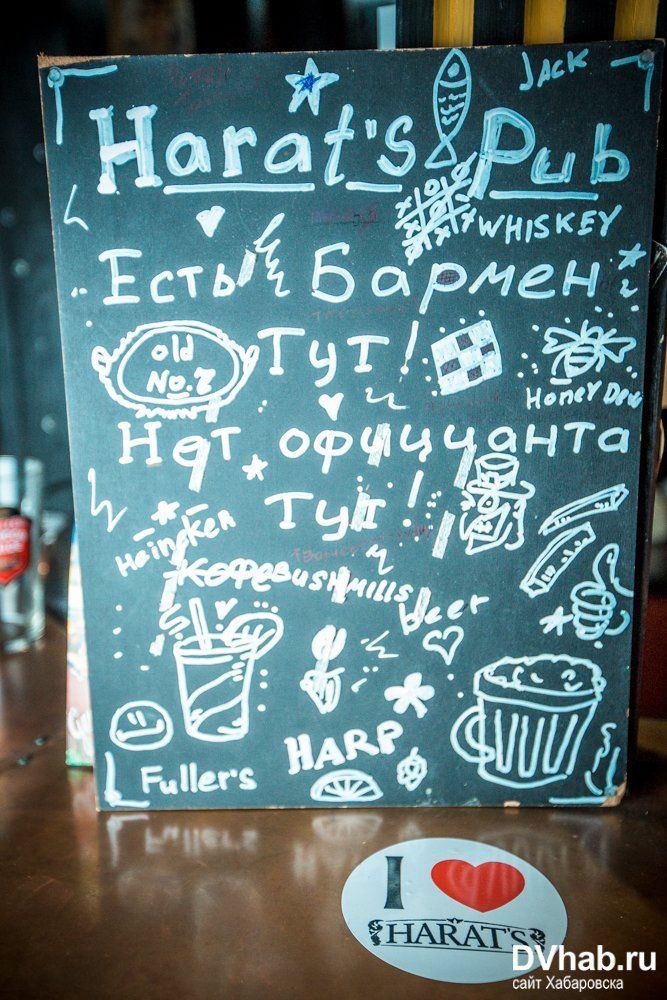 JACK
Harat's Pub
WHISKEY
Есть Бармен
Тут!
old
No. 7
Honey Dew
Нет официанта
Тут!
Heineken
Кофе Bushmills
beer
HARP
Fuller's
I
HARAT'S
DVhab.ru
сайт Хабаровска